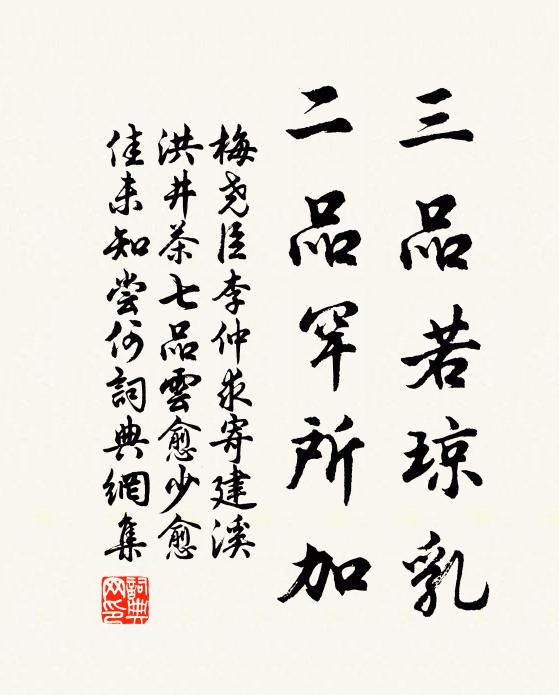 三品若琼乳
二品罕所加
梅尧臣李仲求寄建溪
洪井茶七品雲愈少愈
佳未知嘗何詞典網集
詞典
网印